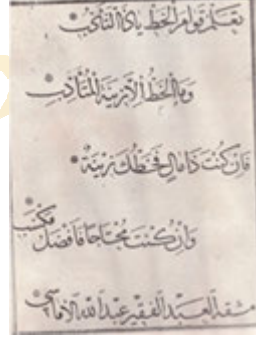 تعلم قوام الخط يا ذا التأدب
وما الخط الا زينة المتأدب
فان كنت ذا مال فخطك زينة
وان كنت محتاجا فافضل مكسب
مشقه العبد الفقير عبد الله الاماسي